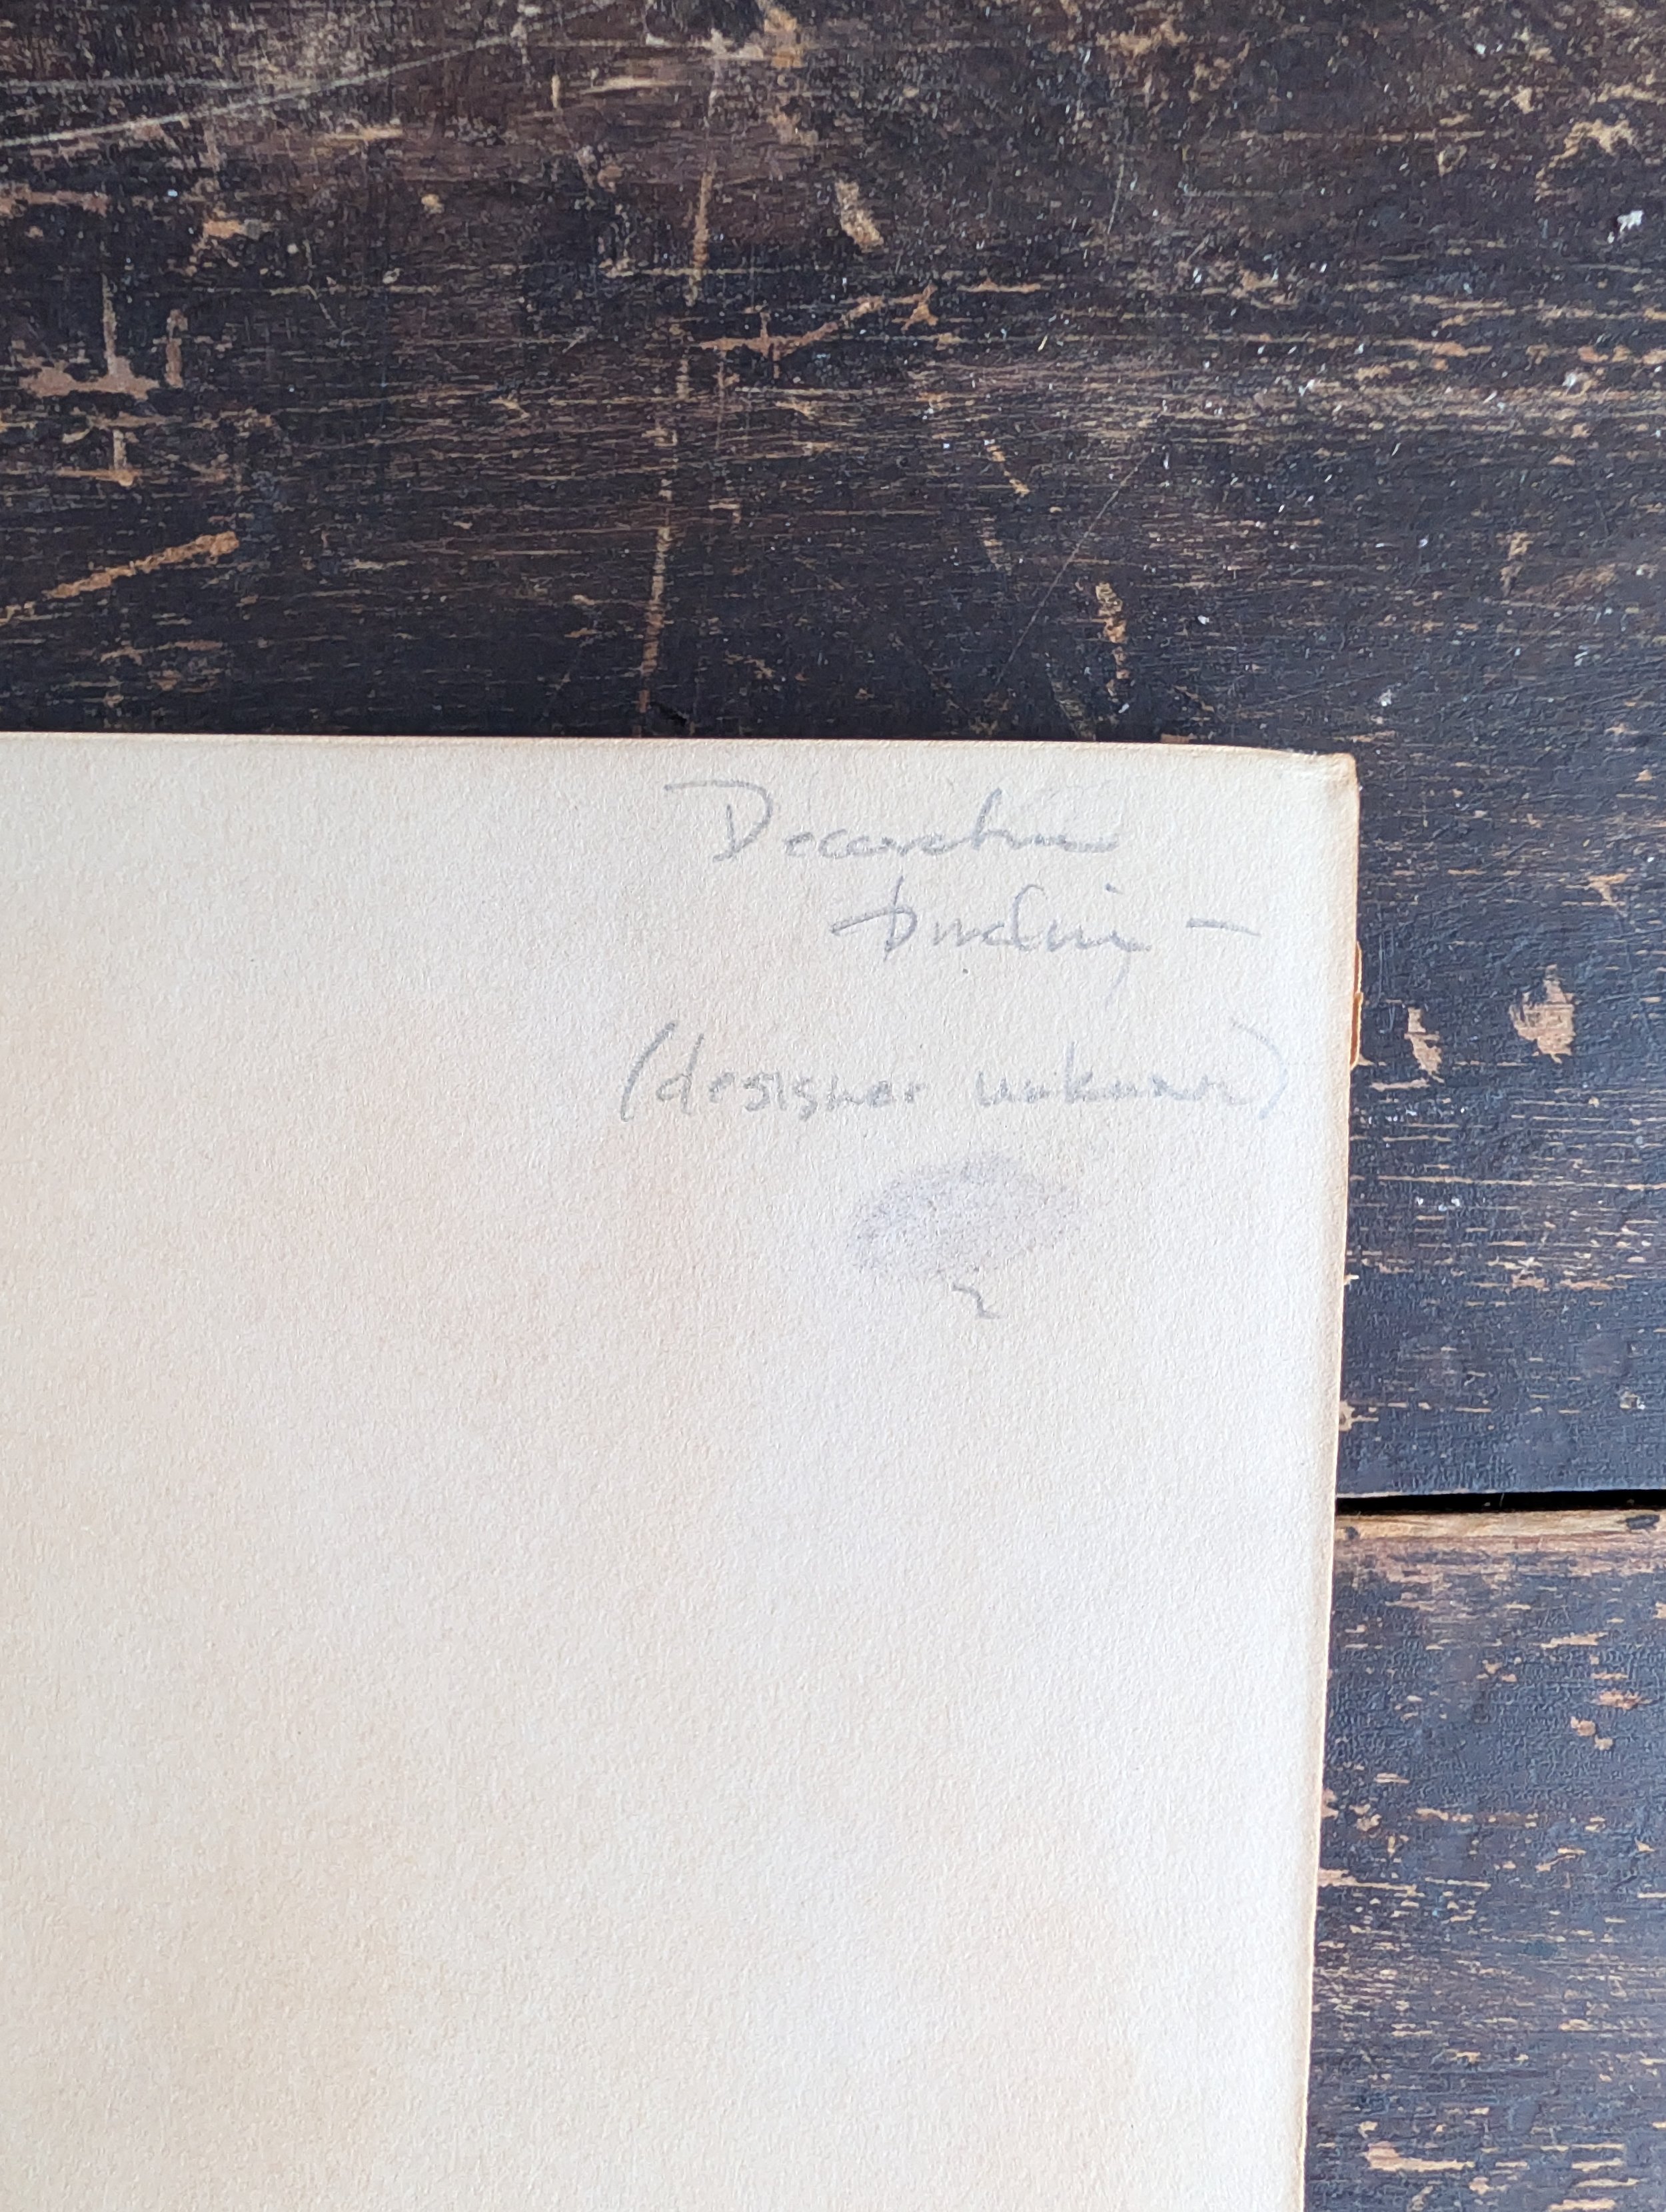 Decorative
binding -
(designer unknown)